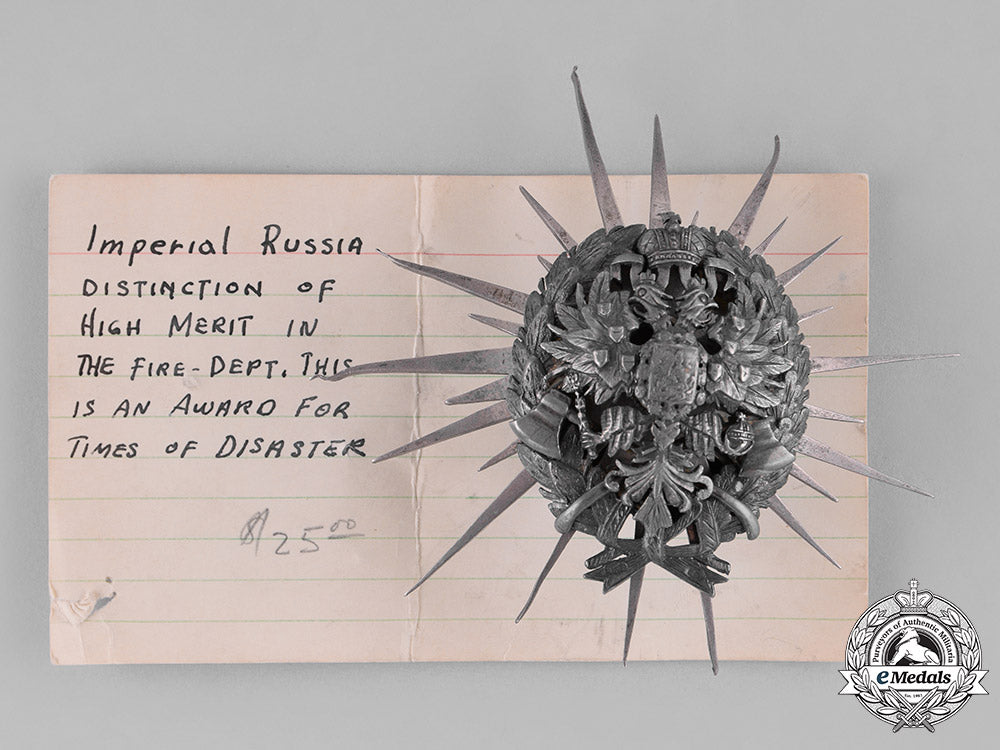 Imperial Russia
DISTINCTION OF
HIGH MERIT IN
THE FIRE-DEPT. THIS
IS AN AWARD FOR
TIMES OF DISASTER
$25.00
Purveyors of Authentic Militaria
eMedals
Est. 1967